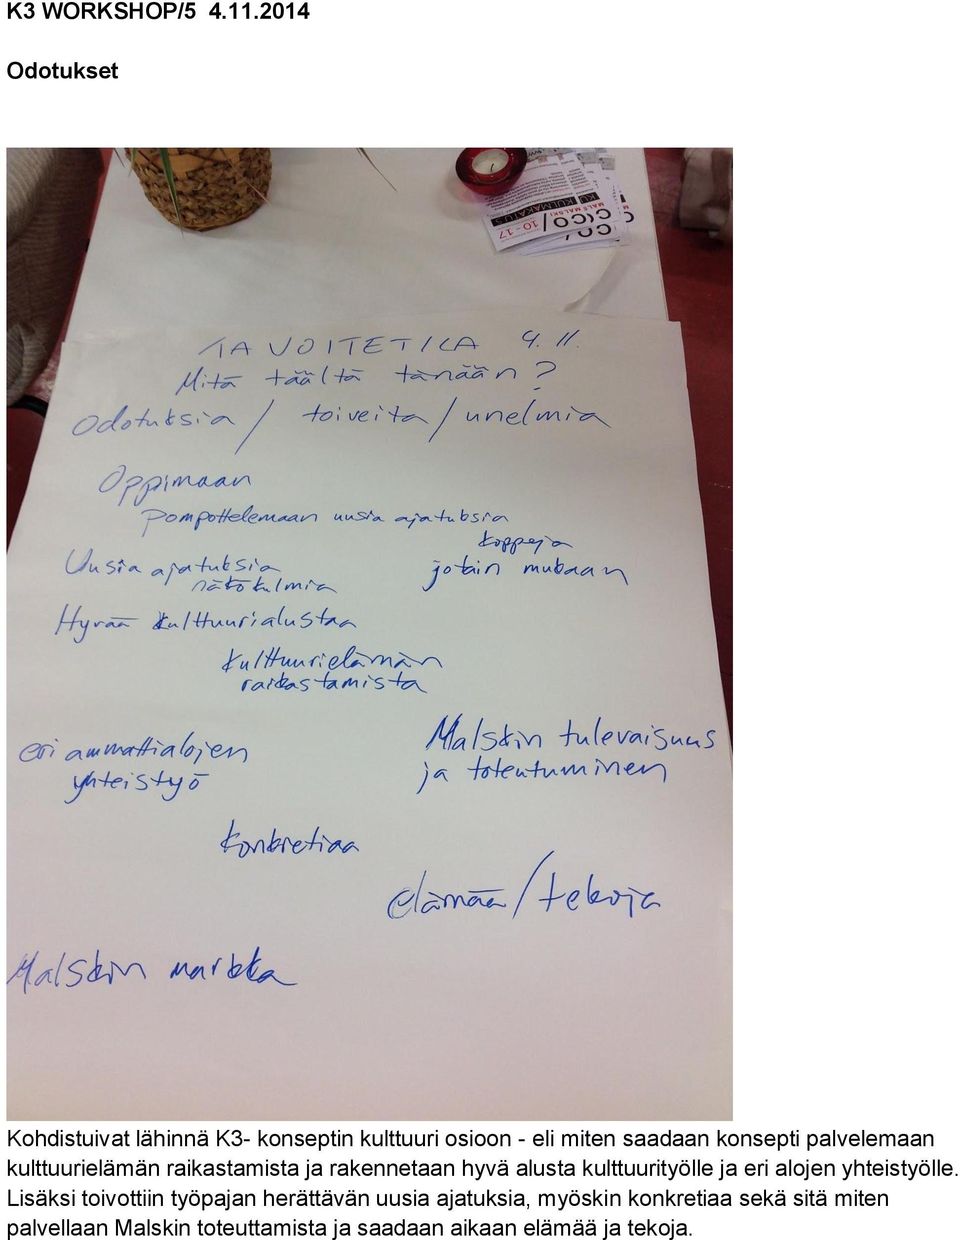 K3 WORKSHOP/5 4.11.2014
Odotukset
MALSKI
KULMAKATU 3
CICO/
10-17
TAVOITETILA 4.11.
Mitä täältä tänään?
Odotuksia / toiveita / unelmia
Oppimaan
Pompottelemaan uusia ajatuksia
koppeja
Uusia ajatuksia
näkökulmia
jotain mukaan
Hyvää kulttuurialustaa
kulttuurielämän
raikastamista
eri ammattialojen
yhteistyö
Malskin tulevaisuus
ja toteutuminen
konkretiaa
elämää/tekoja
Malskin markka
Kohdistuivat lähinnä K3- konseptin kulttuuri osioon - eli miten saadaan konsepti palvelemaan
kulttuurielämän raikastamista ja rakennetaan hyvä alusta kulttuurityölle ja eri alojen yhteistyölle.
Lisäksi toivottiin työpajan herättävän uusia ajatuksia, myöskin konkretiaa sekä sitä miten
palvellaan Malskin toteuttamista ja saadaan aikaan elämää ja tekoja.